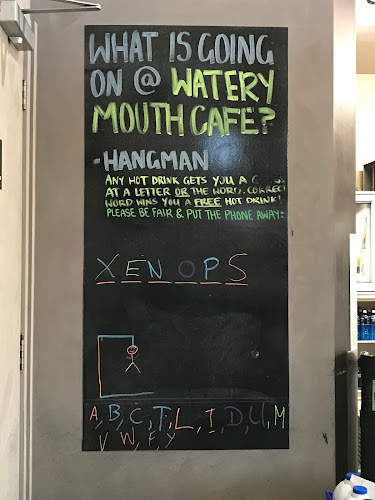 WHAT IS GOING
ON @ WATERY
MOUTH CAFE?
- HANGMAN
ANY HOT DRINK GETS YOU A
AT A LETTER OR THE WORD. CORRECT
WORD WINS YOU A FREE HOT DRINK!
PLEASE BE FAIR & PUT THE PHONE AWAY:
XENOPS
A, B, C, T, L, I, D, U, M
V W, F, Y